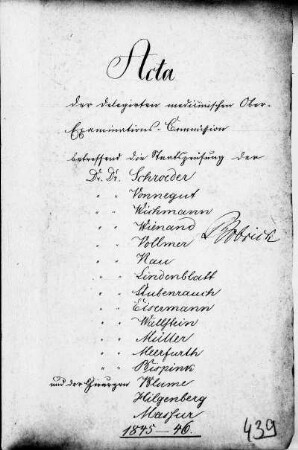 Acta
der delegirten medicinischen Ober-
Examinations-Commission
betreffend die Staatsprüfung der
Dr. Dr. Schroeder
" " Vonnegut
" " Wichmann
" " Wienand
" " Vollmer
" " Nau
" " Lindenblatt
" " Stubenrauch
" " Eisermann
" " Wallstein
" " Müller
" " Meerfurth
" " Rispink
und der Chirurgen Blume
Hilgenberg
Massur
1845-46.
439